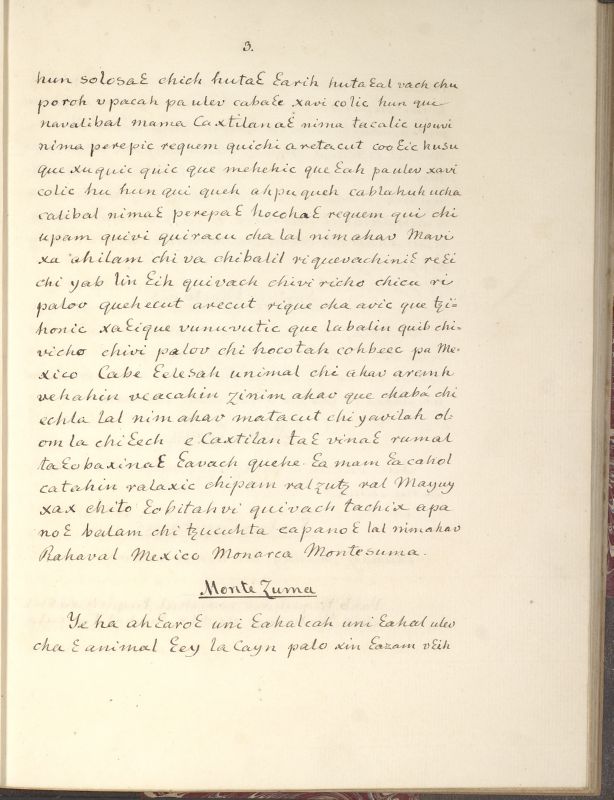 3.
hun solosaƐ chich hutaƐ Ɛarih hutaƐal vach chu
poroh vpacah pa ulev cabaƐe xavi colic hun qui
navalibal mama CaxtilanaƐ nima tacalic upuvi
nima perepic requem quichi aretacut cooƐic husu
que xuquic quic que mehehic que Ɛah pa ulev xavi
colic hu hun qui queh ahpuqueh cablahuh ucha
calibal nimaƐ perepaƐ hocohaƐ requem qui chi
upam quivi quiracu cha lal nimahav Mavi
xa ahilam chi va chibalil riquevachiniƐ reƐi
chi yab lin Ɛih quivach chivi richo chicu ri
palov quehecut arecut rique cha avic que tzi=
honic xaƐique vunuvutic que labalin quib chi=
vicho chivi palov chi hocotah cohbeec pa Me-
xico Cabe Ɛelesah unimal chi ahav aremh
vehahin vcacahin zinimahav que chabá chi
echla lal nimahav matacut chi yavilah ol-
om la chiƐech e Caxtilan taƐ vinaƐ rumal
taƐobaxinaƐ Ɛavach quehe Ɛa mam Ɛa cahol
catahin ralaxic chipam ralzutz ral Mayuy
xax chito Ɛobitahvi quivach tachix apa
noƐ balam chi tzucuhta capanoƐ lal nimahav
Rahaval Mexico Monarca Montesuma.
Monte Zuma
Ye ha ahƐaroƐ uni Ɛahalcah uni Ɛahal ulev
cha Ɛanimal Ɛey la Cayn palo xin Ɛazam vƐih